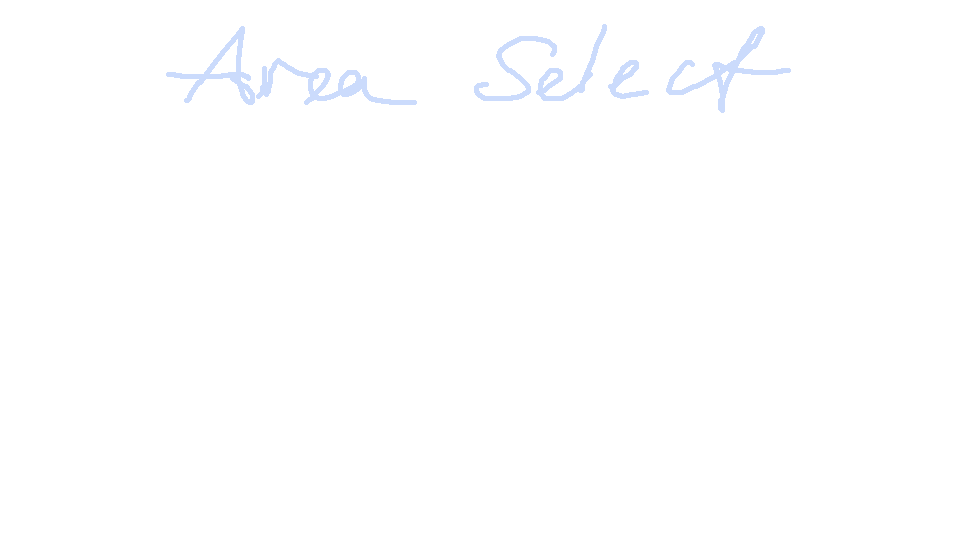 Area Select